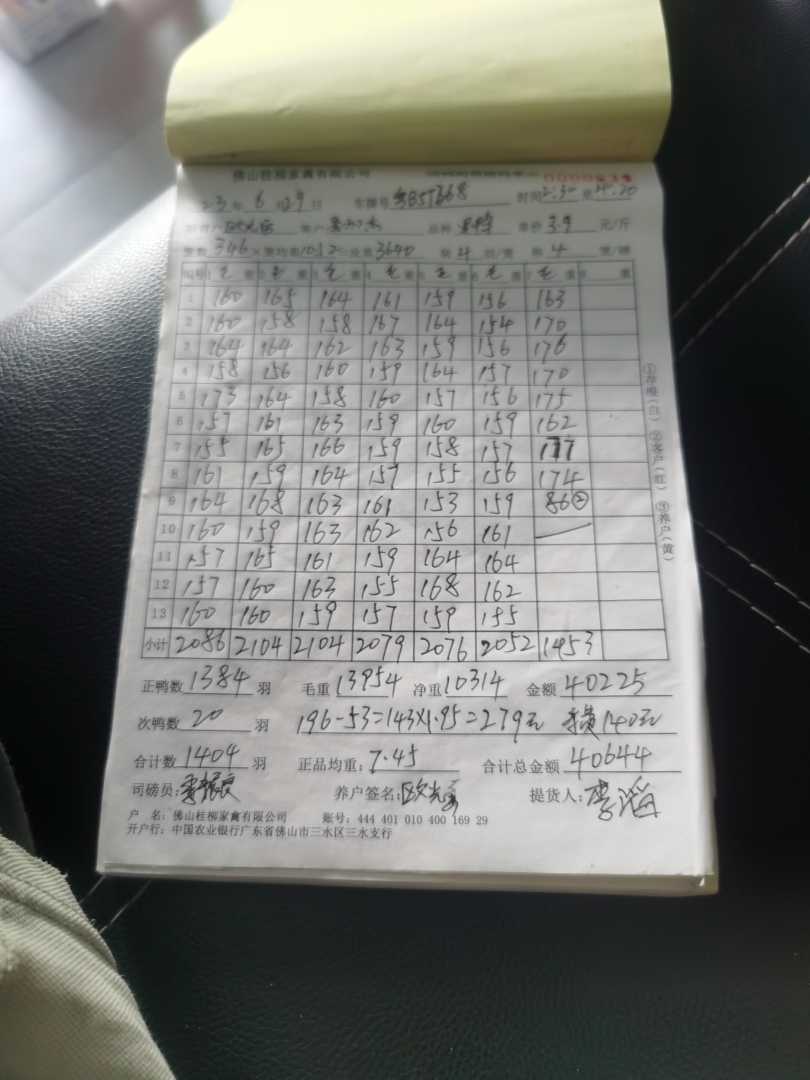 佛山桂柳家禽有限公司
23年6月29日 车牌号 时间2:30至4:20
品种 单价3.9元/斤
346 3640 4 4
编号 毛重 毛重 毛重 毛重 毛重 毛重 毛重 重
1 160 165 164 161 159 156 163
2 160 158 158 167 164 154 170
3 164 164 162 163 159 156 176
4 158 156 160 159 164 157 170
5 173 164 158 160 157 156 175
6 157 161 163 159 160 159 162
7 155 165 166 159 158 157 177
8 161 159 164 157 155 156 174
9 164 168 163 161 153 159 86②
10 160 159 163 162 156 161
11 157 165 161 159 164 164
12 157 160 163 155 168 162
13 160 160 159 157 159 155
小计 2086 2104 2104 2079 2076 2052 1453
正鸭数1384羽 毛重13954 净重10314 金额40225
次鸭数20羽 196-53=143×1.95=279元 140元
合计数1404羽 正品均重:7.45 合计总金额40644
司磅员: 养户签名: 提货人:
户 名:佛山桂柳家禽有限公司 账号:444 401 010 400 169 29
开户行:中国农业银行广东省佛山市三水区三水支行
①存根(白) ②客户(红) ③养户(黄)